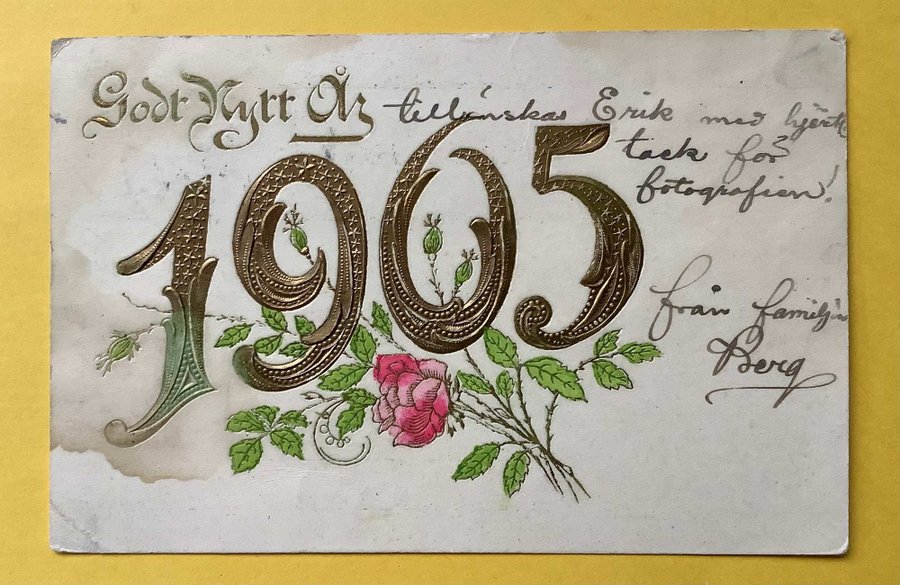 Godt Nytt År tillönskas Erik med hjertl
tack för
fotografien!
1905
från familjen
Berg